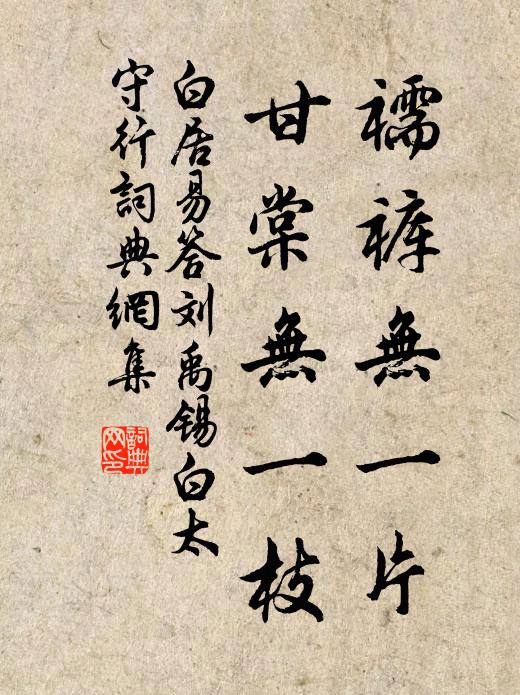 襦裤無一片
甘棠無一枝
白居易答刘禹锡白太
守行詞典網集
詞典
网印